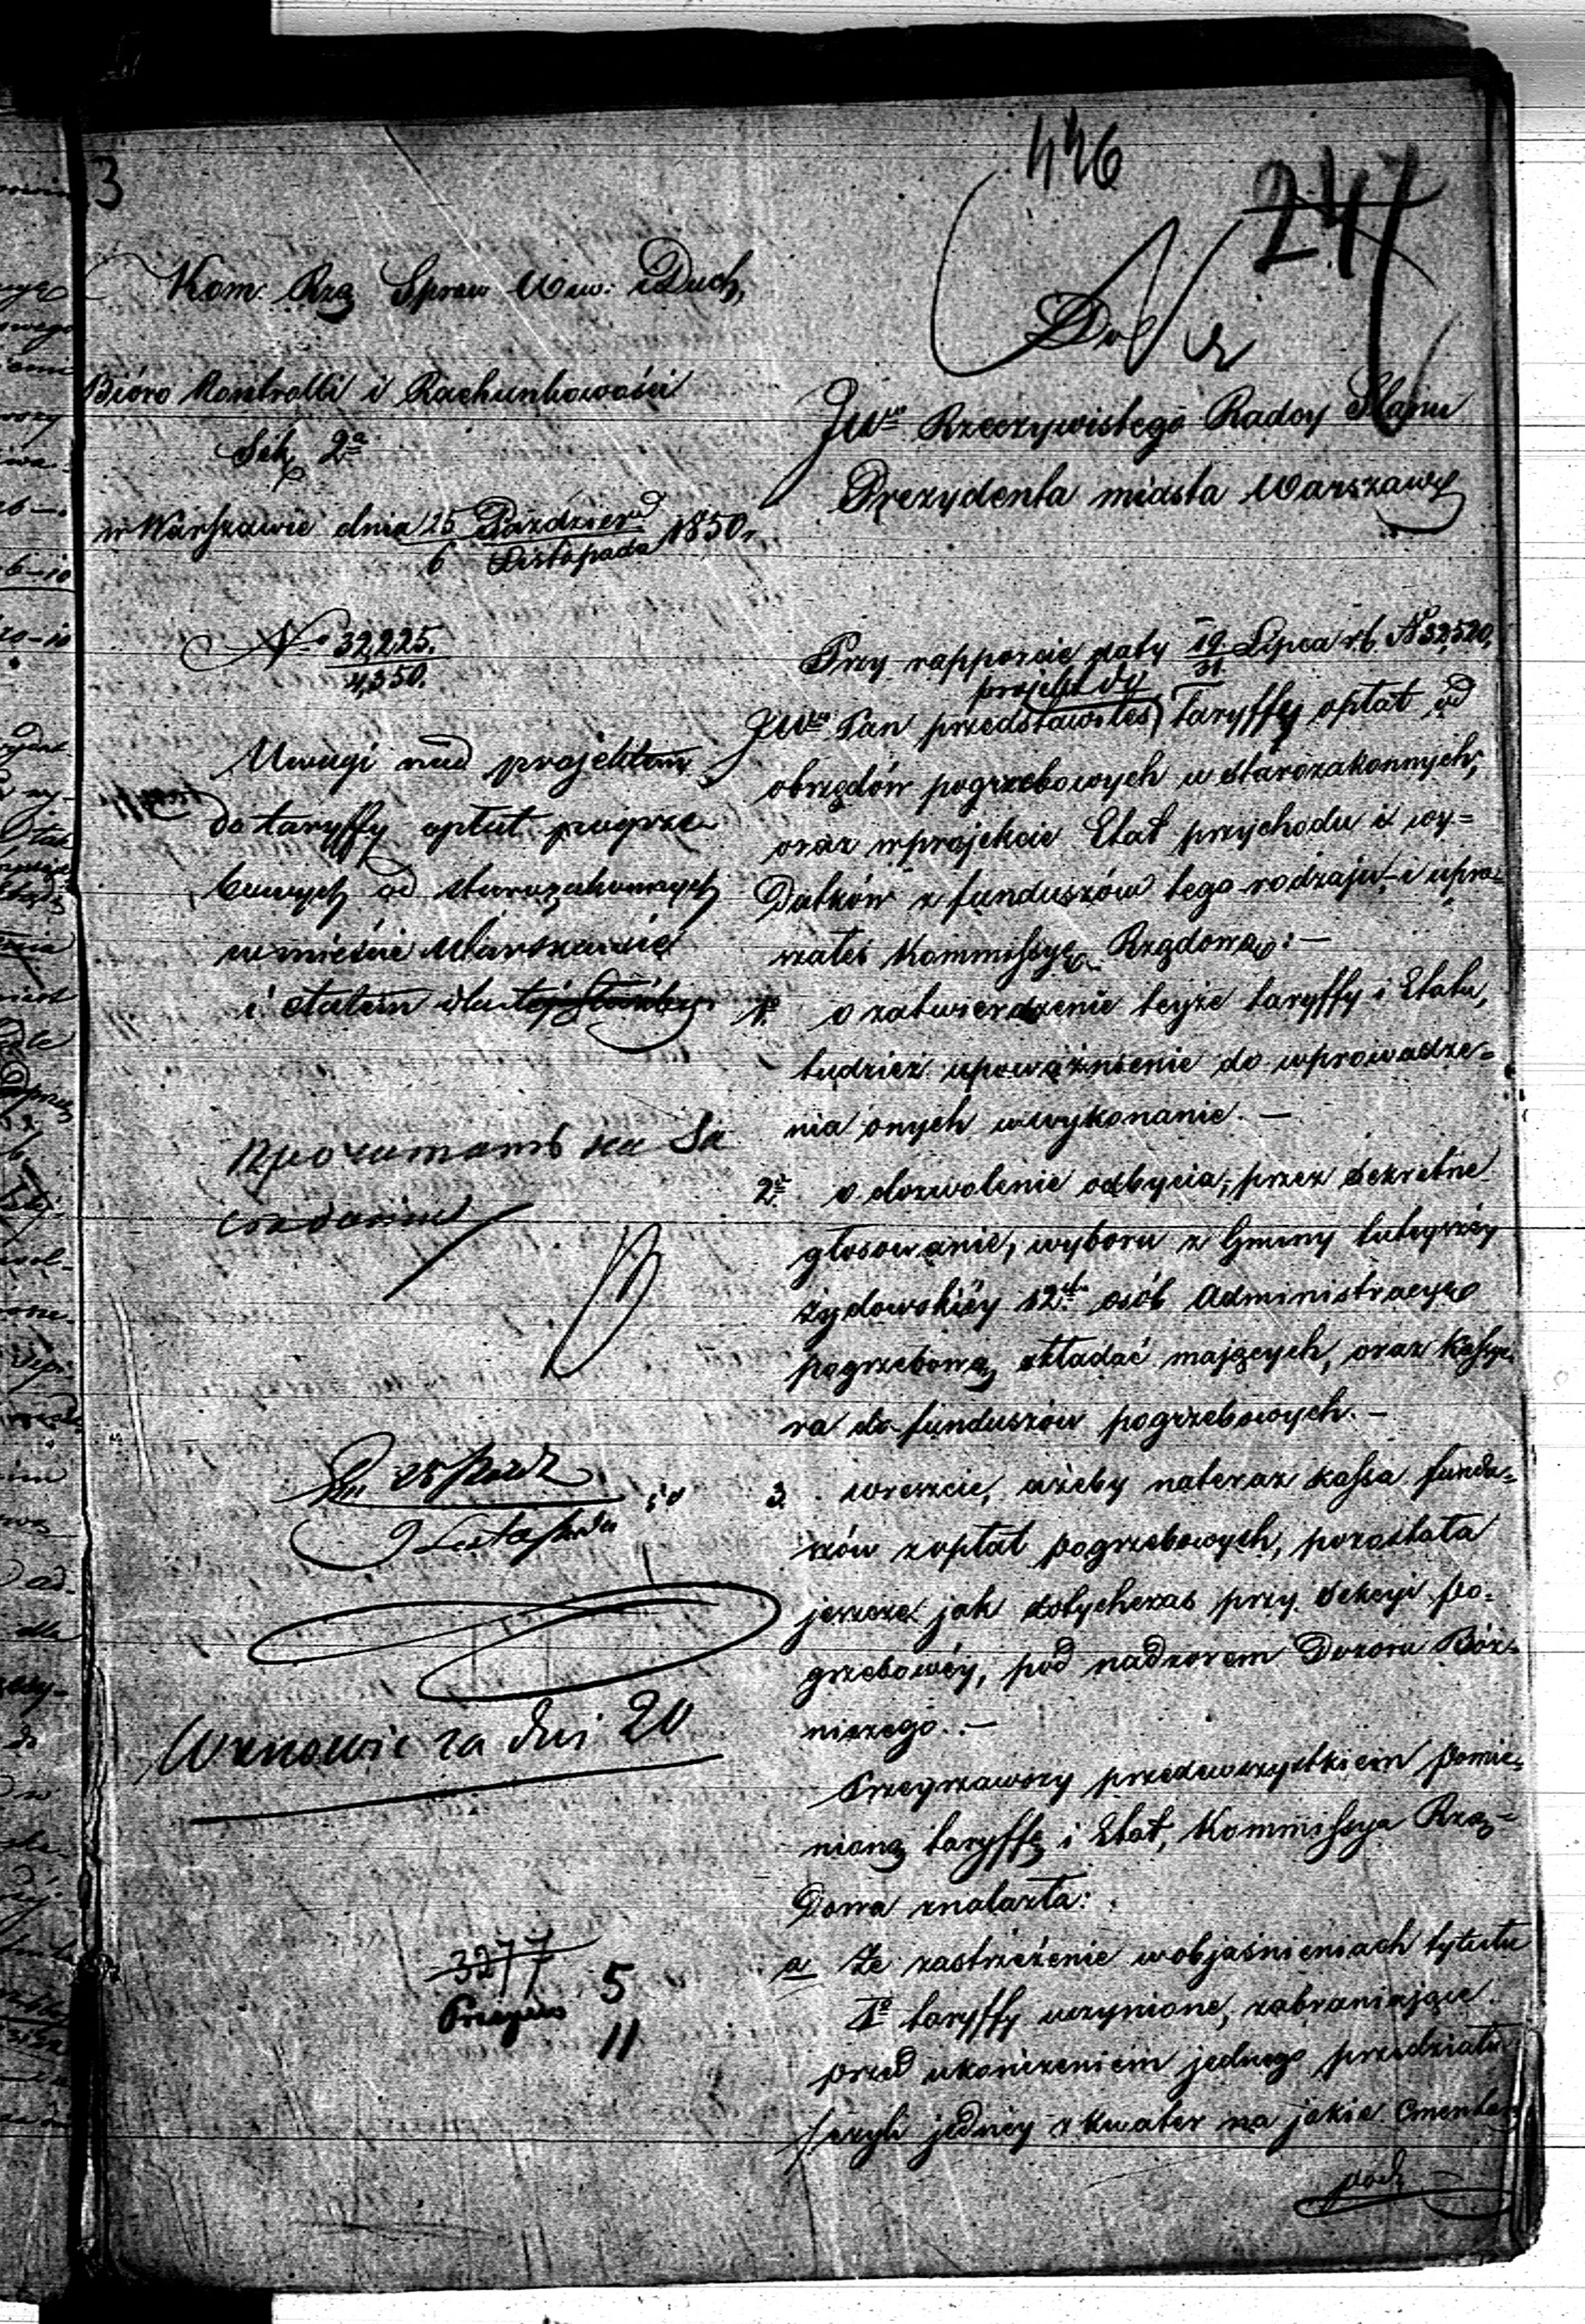 446
247
3
Kom. Rzą. Spraw Wew. i Duch.
Bióro Kontrolli i Rachunkowości
Sek. 2a
w Warszawie dnia 25 Październ. / 6 Listopada 1850 r.
No 32225. / 4,350.
Uwagi nad projektem
do taryffy opłat pogrze
bowych od starozakonnych
w mieście Warszawie
i etatem dla tej służby
Do
JWo Rzeczywistego Radcy Stanu
Prezydenta miasta Warszawy
Przy rapporcie daty 19/31 Lipca r.b. No 32,520,
projekt do
JWny Pan przedstawiłeś taryffy opłat od
obrzędów pogrzebowych u starozakonnych,
oraz w projekcie Etat przychodu i wy=
datków z funduszów tego rodzaju i upra=
szałeś Kommissyę Rządową: —
1o o zatwierdzenie tejże taryffy i Etatu,
tudzież upoważnienie do wprowadze=
nia onych w wykonanie. —
2o o dozwolenie odbycia, przez sekretne
głosowanie, wyboru z Gminy tutejszéy
żydowskiéy 12tu osób Administracyę
pogrzebową składać mających, oraz Kassye
ra do funduszów pogrzebowych. —
3. wreszcie, ażeby nateraz kassa fundu=
szów z opłat pogrzebowych, pozostała
jeszcze jak dotychczas przy Sekcyi po=
grzebowéy, pod nadzorem Dozoru Bóż=
niczego. —
Przeyrzawszy przedewszystkiem pomie=
nioną taryffę i Etat, Kommissya Rzą=
dowa znalazła:
a Że zastrzeżenie w objaśnieniach tytułu
1o taryffy uczynione, zabraniające
przed ukończeniem jednego przedziału
/ czyli jednéy z kwater na jakie Cmentarz
podz
Прочитать на За
сѣданіи
25 Paźdz
Listopada
Wznowić za dni 20
3277
5
11